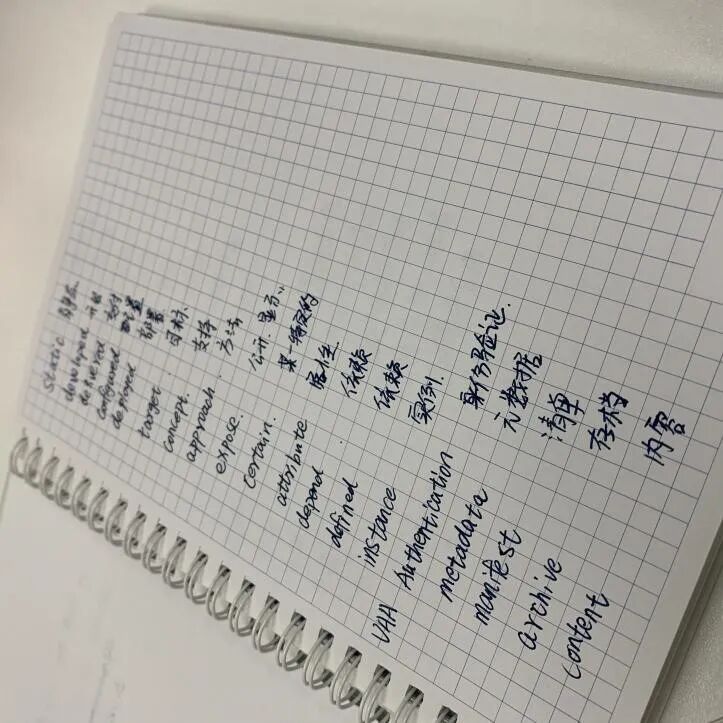 Static 静态
developed 开发
delivered 交付
configured 配置
deployed 部署
target 目标
concept.
approach 方法
expose. 公开. 显示.
certain. 某 特定的
attribute 属性
depend 依赖
defined. 依赖
instance 实例.
VAA Authentication 身份验证.
metadata 元数据
manifest 清单
archive 存档
content 内容